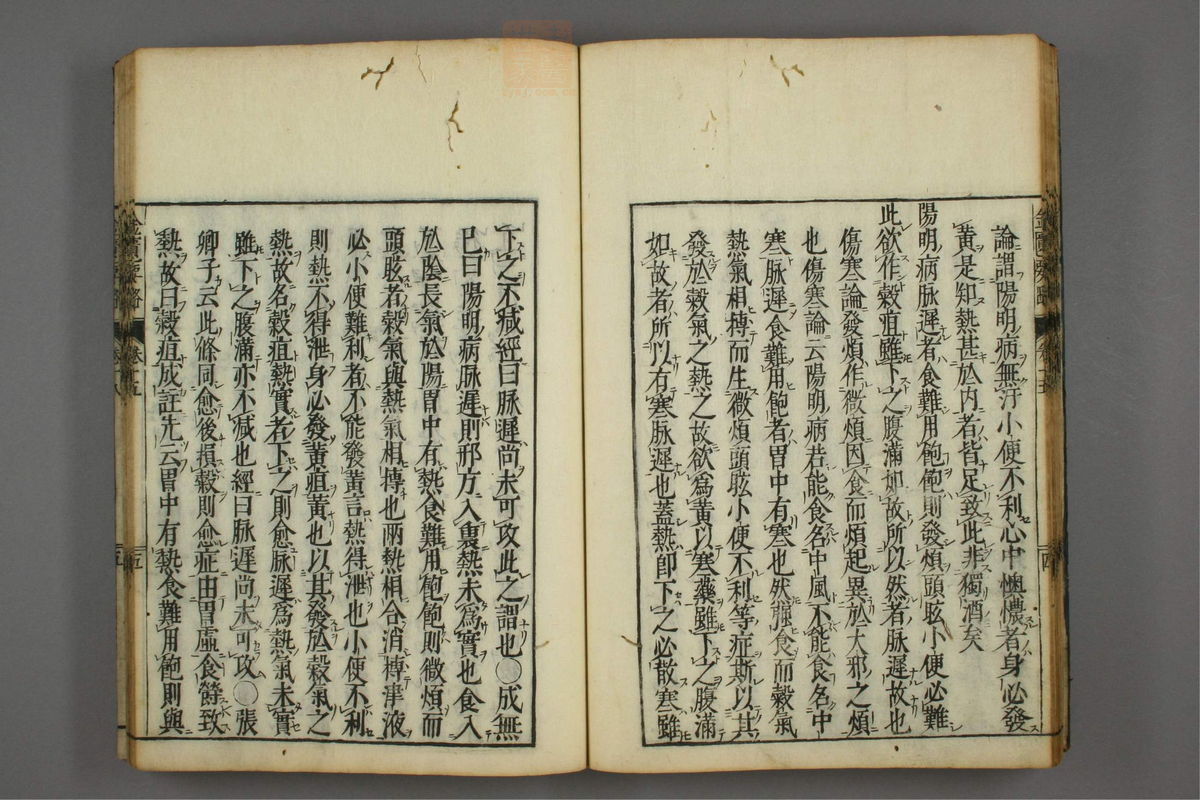 論謂陽明病無汗小便不利心中懊憹者身必發
黃是知熱甚於内者皆足致此非獨酒矣
陽明病脉遲者食難用飽飽則發煩頭眩小便必難
此欲作穀疸雖下之腹滿如故所以然者脉遲故也
傷寒論發煩作微煩因食而煩起異於大邪之煩
也傷寒論云陽明病若能食名中風不能食名中
寒脉遲食難用飽者胃中有寒也然強食而穀氣
熱氣相摶而生微煩頭眩小便不利等症斯以其
發於穀氣之熱之故欲為黃以寒藥雖下之腹滿
如故者所以有寒脉遲也蓋熱卽下之必散寒雖
下之不減經曰脉遲尚未可攻此之謂也○成無
已曰陽明病脉遲則邪方入裏熱未為實也食入
於陰長氣於陽胃中有熱食難用飽飽則微煩而
頭眩者穀氣與熱氣相摶也兩熱相合消摶津液
必小便難利者不能發黃言熱得泄也小便不利
則熱不得泄身必發黃疸黃也以其發於穀氣之
熱故名穀疸熱實者下之則愈脉遲為熱氣未實
雖下之腹滿亦不減也經曰脉遲尚未可攻○張
卿子云此條同愈後損穀則愈症由胃虛食餘致
熱故曰穀疸成註先云胃中有熱食難用飽則與